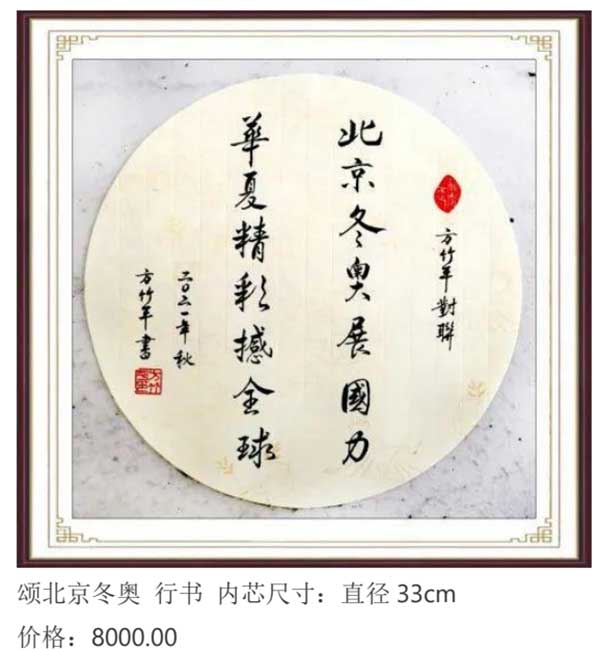 方竹年對聯
北京冬奧展國力
華夏精彩撼全球
二〇二一年秋
方竹年書
颂北京冬奥 行书 内芯尺寸：直径 33cm
价格：8000.00